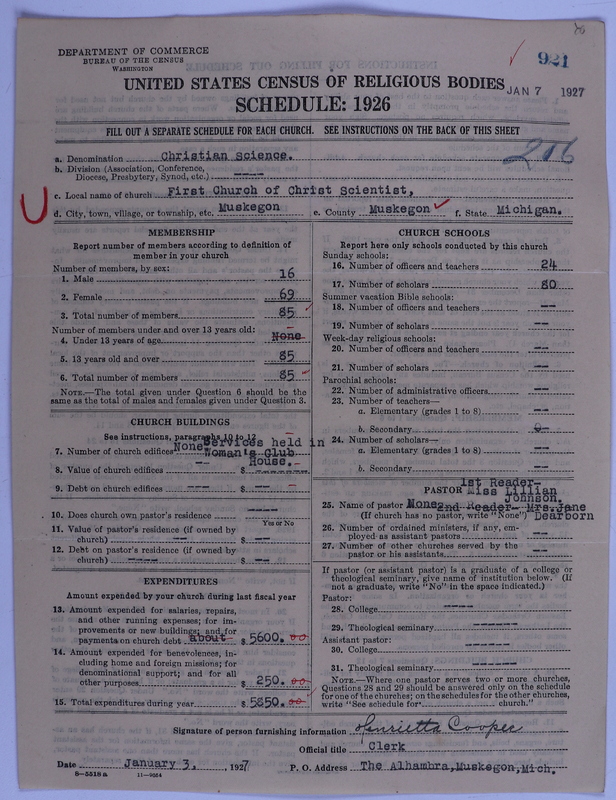 DEPARTMENT OF COMMERCE
BUREAU OF THE CENSUS
WASHINGTON
921
UNITED STATES CENSUS OF RELIGIOUS BODIES
JAN 7 1927
SCHEDULE: 1926
FILL OUT A SEPARATE SCHEDULE FOR EACH CHURCH. SEE INSTRUCTIONS ON THE BACK OF THIS SHEET
206
a. Denomination Christian Science.
b. Division (Association, Conference, Diocese, Presbytery, Synod, etc.) ----
c. Local name of church First Church of Christ Scientist,
d. City, town, village, or township, etc. Muskegon e. County Muskegon f. State Michigan.
MEMBERSHIP
Report number of members according to definition of member in your church
Number of members, by sex:
1. Male 16
2. Female 69
3. Total number of members 85
Number of members under and over 13 years old:
4. Under 13 years of age None
5. 13 years old and over 85
6. Total number of members 85
NOTE.—The total given under Question 6 should be the same as the total of males and females given under Question 3.
CHURCH BUILDINGS
See instructions, paragraphs 10 to 12
7. Number of church edifices None Services held in Woman's Club House.
8. Value of church edifices $ ------
9. Debt on church edifices --- $ ---
10. Does church own pastor's residence ----
Yes or No
11. Value of pastor's residence (if owned by church) -- $ --
12. Debt on pastor's residence (if owned by church) ---- $ --
EXPENDITURES
Amount expended by your church during last fiscal year
13. Amount expended for salaries, repairs, and other running expenses; for improvements or new buildings; and for payments on church debt about $ 5600. 00
14. Amount expended for benevolences, including home and foreign missions; for denominational support; and for all other purposes $ 250. 00
15. Total expenditures during year $ 5850. 00
CHURCH SCHOOLS
Report here only schools conducted by this church
Sunday schools:
16. Number of officers and teachers 24
17. Number of scholars 80
Summer vacation Bible schools:
18. Number of officers and teachers --
19. Number of scholars --
Week-day religious schools:
20. Number of officers and teachers --
21. Number of scholars --
Parochial schools:
22. Number of administrative officers --
23. Number of teachers—
a. Elementary (grades 1 to 8) --
b. Secondary
24. Number of scholars—
a. Elementary (grades 1 to 8) --
b. Secondary --
PASTOR
1st Reader- Miss Lillian Johnson.
25. Name of pastor None 2nd Reader- Mrs. Jane Dearborn
(If church has no pastor, write "None")
26. Number of ordained ministers, if any, employed as assistant pastors --
27. Number of other churches served by the pastor or his assistants --
If pastor (or assistant pastor) is a graduate of a college or theological seminary, give name of institution below. (If not a graduate, write "No" in the space indicated.)
Pastor:
28. College ----
29. Theological seminary -----
Assistant pastor:
30. College -----
31. Theological seminary -----
NOTE.—Where one pastor serves two or more churches, Questions 28 and 29 should be answered only on the schedule for one of the churches; on the schedules for the other churches, write "See schedule for church."
Signature of person furnishing information Henrietta Cooper
Official title Clerk
Date January 3, 1927 P. O. Address The Alhambra, Muskegon, Mich.
8—5518a 11—9054